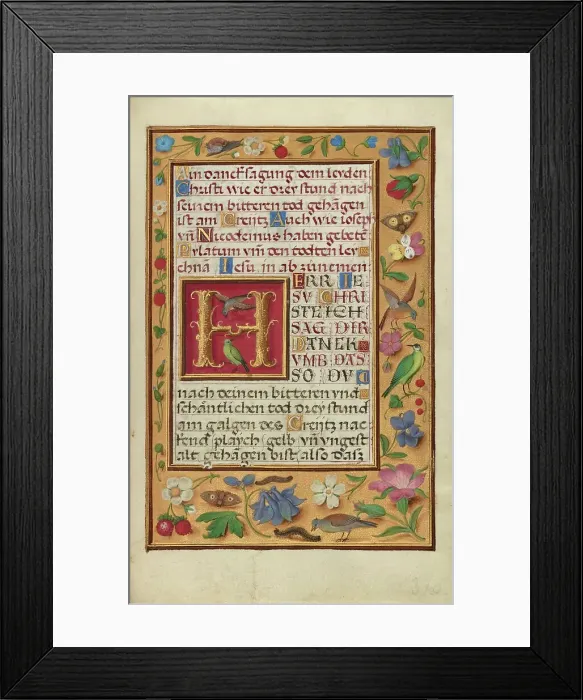 Ain danckſagung dem leyden
Chriſti wie er drey ſtund nach
ſeinem bitteren tod gehangen
iſt am Creŋtz Auch wie ioſeph
vn̄ Nicodeinus haben gebetē
Pylatum vm̄ den todten ley
chnā Ieſu in ab zunemen
HERR IE
SV CHRI
STE ICH
SAG DIR
DANCK
VMB DAS
SO DV
nach deinem bitteren vnd
ſchantlichen tod drey ſtund
am galgen des Creŋtz nac
kend playch gelb vn̄ vngeſt
alt gehangen biſt alſo dasz